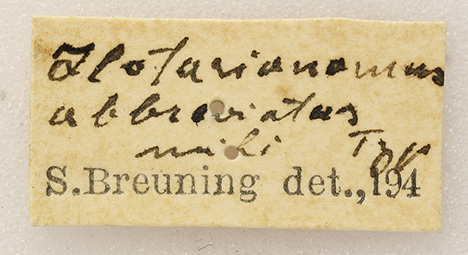 Hotarionomus
abbreviatus
mihi Typ
S.Breuning det.,194